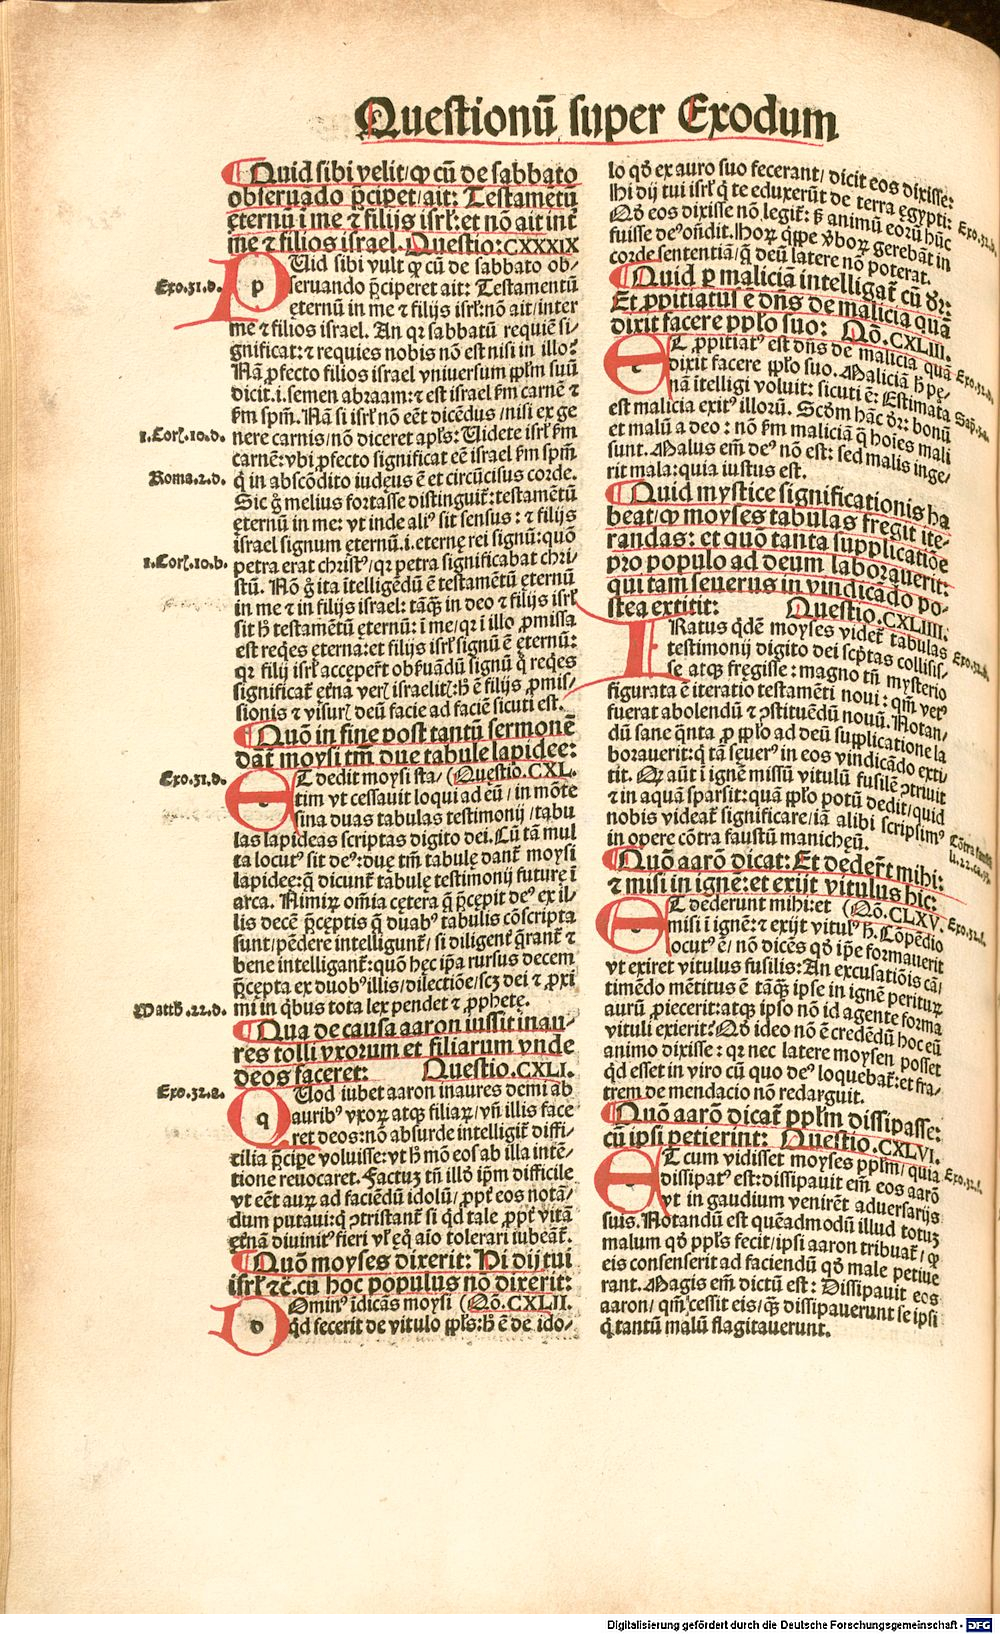 Questionū super Exodum
Quid sibi velit/ꝙ cū de sabbato
obseruādo p̄cipet/ait: Testamētū
ęternū i me ⁊ filijs isrl̓: et nō ait int̄
me ⁊ filios israel. Questio: CXXXIX
Exo.31.d.
p
Uid sibi vult ꝙ cū de sabbato ob⸗
seruando p̄ciperet ait: Testamentū
ęternū in me ⁊ filijs isrl̓: nō ait/inter
me ⁊ filios israel. An qꝛ sabbatū requiē si⸗
gnificat: ⁊ requies nobis nō est nisi in illo?
Nā ꝓfecto filios israel vniuersum ppl̓m suū
dicit.i.semen abraam: ⁊ est israel ẜm carnē ⁊
ẜm spm̄. Nā si isrl̓ nō eēt dicēdus/nisi ex ge
1.Corī.10.d.
nere carnis/nō diceret apl̓s: Uidete isrl̓ ẜm
carnē: vbi ꝓfecto significat eē israel ẜm spm̄
Roma.2.d.
q̇ in abscōdito iudęus ē et circūcisus corde.
Sic g̊ melius fortasse distinguit᷑: testamētū
ęternū in me: vt inde aliꝰ sit sensus: ⁊ filijs
israel signum ęternū.i.eternę rei signū: quō
1.Corī.10.b.
petra erat christꝰ/qꝛ petra significabat chri⸗
stū. Nō g̊ ita ītelligēdū ē testamētū ęternū
in me ⁊ in filijs israel: tāq̄ in deo ⁊ filijs isrl̓
sit h̓ testamētū ęternū: i me/qꝛ i illo ꝓmissa
est reqēs ęterna: et filijs isrl̓ signū ē ęternū:
qꝛ filij isrl̓ accęper̄t obẜuādū signū q̇ reqēs
significat᷑ ęt̄na verī israelitī: h̓ ē filijs ꝓmis⸗
sionis ⁊ visurī deū facie ad faciē sicuti est.
Quō in fine post tantū sermonē
dat᷑ moysi tm̄ due tabule lapidee:
Exo.31.d.
ET dedit moysi sta⸗ (Questio.CXL.
tim vt cessauit loqui ad eū/in mōte
sina duas tabulas testimonij/tabu
las lapideas scriptas digito dei. Cū tā mul
ta locutꝰ sit deꝰ: duę tm̄ tabulę dant᷑ moysi
lapideę: q̄ dicunt᷑ tabulę testimonij futurę ī
arca. Nimiꝝ om̄ia cętera q̄ p̄cepit deꝰ ex il⸗
lis decē p̄ceptis q̄ duabꝰ tabulis cōscripta
sunt/pēdere intelligunt᷑/si diligent᷑ q̄rant᷑ ⁊
bene intelligant᷑: quō hęc ip̄a rursus decem
p̄cępta ex duobꝰ illis/dilectiōe/scꝫ dei ⁊ ꝓxi
Matth̄.22.d.
mi in q̇bus tota lex pendet ⁊ ꝓphetę.
Qua de causa aaron iussit inau⸗
res tolli vxorum et filiarum vnde
deos faceret: Questio.CXLI.
Exo.32.a.
q
Uod iubet aaron inaures demi ab
auribꝰ vxoꝝ atqꝫ filiaꝝ/vn̄ illis face
ret deos: nō absurde intelligit᷑ diffi⸗
cilia p̄cipe voluisse: vt h̓ mō eos ab illa intē⸗
tione reuocaret. Factuꝫ tn̄ illō ip̄m difficile
vt eēt auꝝ ad faciēdū idolū/ꝓpt᷑ eos notā⸗
dum putaui: q̇ ↄtristant᷑ si qd̓ tale ꝓpt᷑ vitā
ęt̄nā diuinitꝰ fieri vl̓ eq̄ aīo tolerari iubeāt᷑.
Quō moyses dixerit: Hi dij tui
isrl̓ ⁊c̄. cū hoc populus nō dixerit:
D
Ominꝰ īdicās moysi (Qō.CXLII.
qd̓ fecerit de vitulo ppl̓s: h̓ ē de ido⸗
lo qd̓ ex auro suo fecerant/dicit eos dixisse:
Hi dij tui isrl̓ q̇ te eduxerūt de terra ęgypti:
Exo.32.b.
Qd̓ eos dixisse nō legit᷑: ẜ animū eorū hūc
fuisse deꝰ oñdit. Hoꝝ q̄ppe ꝟboꝝ gerebāt in
corde sententiā/q̄ deū latere nō poterat.
Quid p maliciā intelligat᷑ cū dr̄:
Et ꝓpitiatus ē dn̄s de malicia quā
dixit facere ppl̓o suo: Qō.CXLIII.
Exo.32.b.
ET ꝓpitiatꝰ est dn̄s de malicia quā
dixit facere ppl̓o suo. Maliciā h̓ pę⸗
nā ītelligi voluit: sicuti ē: Estimata
Sap̄.3.a.
est malicia exitꝰ illorū. Scd̓m hāc dr̄: bonū
et malū a deo: nō ẜm maliciā q̄ hoīes mali
sunt. Malus em̄ deꝰ nō est: sed malis inge⸗
rit mala: quia iustus est.
Quid mystice significationis ha
beat/ꝙ moyses tabulas fregit ite⸗
randas: et quō tanta supplicatiōe
pro populo ad deum laborauerit:
qui tam seuerus in vindicādo po⸗
stea extitit: Questio.CXLIIII.
IRatus qd̓ē moyses videt᷑ tabulas
Exo.32.b.
testimonij digito dei scp̄tas collisis⸗
se atqꝫ fregisse: magno tn̄ mysterio
figurata ē iteratio testamēti noui: qm̄ vetꝰ
fuerat abolendū ⁊ ↄstituēdū nouū. Notan⸗
dū sane q̄nta ꝓ ppl̓o ad deū supplicatione la
borauerit: q̇ tā seuerꝰ in eos vindicādo exti⸗
tit. Qꝛ aūt i ignē missū vitulū fusilē ↄtriuit
⁊ in aquā sparsit: quā ppl̓o potū dedit/quid
nobis videat᷑ significare/iā alibi scripsimꝰ
in opere cōtra faustū manichęū.
Cōtra faustū
li.22.ca.93.
Quō aarō dicat: Et deder̄t mihi:
⁊ misi in ignē: et exijt vitulus hic:
ET dederunt mihi: et (Qō.CLXV.
Exo.32.f.
misi i ignē: ⁊ exijt vitulꝰ h̓. Cōpēdio
locutꝰ ē/nō dicēs qd̓ ip̄e formauerit
vt exiret vitulus fusilis: An excusatiōis cā/
timēdo mētitus ē tāq̄ ipse in ignē perituꝝ
aurū ꝓiecerit: atqꝫ ipso nō id agente forma
vituli exierit? Qd̓ ideo nō ē credēdū hoc eū
animo dixisse: qꝛ nec latere moysen posset
qd̓ esset in viro cū quo deꝰ loquebat᷑: et fra⸗
trem de mendacio nō redarguit.
Quō aarō dicat᷑ ppl̓m dissipasse:
cū ipsi petierint: Questio.CXLVI.
ET cum vidisset moyses ppl̓m/quia
Exo.32.f.
dissipatꝰ est: dissipauit em̄ eos aarō
vt in gaudium venirēt aduersarijs
suis. Notandū est quēadmodū illud totuꝫ
malum qd̓ ppl̓s fecit/ipsi aaron tribuat᷑/ꝙ
eis consenserit ad faciendū qd̓ male petiue
rant. Magis em̄ dictū est: Dissipauit eos
aaron/qm̄ cessit eis/q̄ dissipauerunt se ipsi
q̇ tantū malū flagitauerunt.
Digitalisierung gefördert durch die Deutsche Forschungsgemeinschaft - DFG